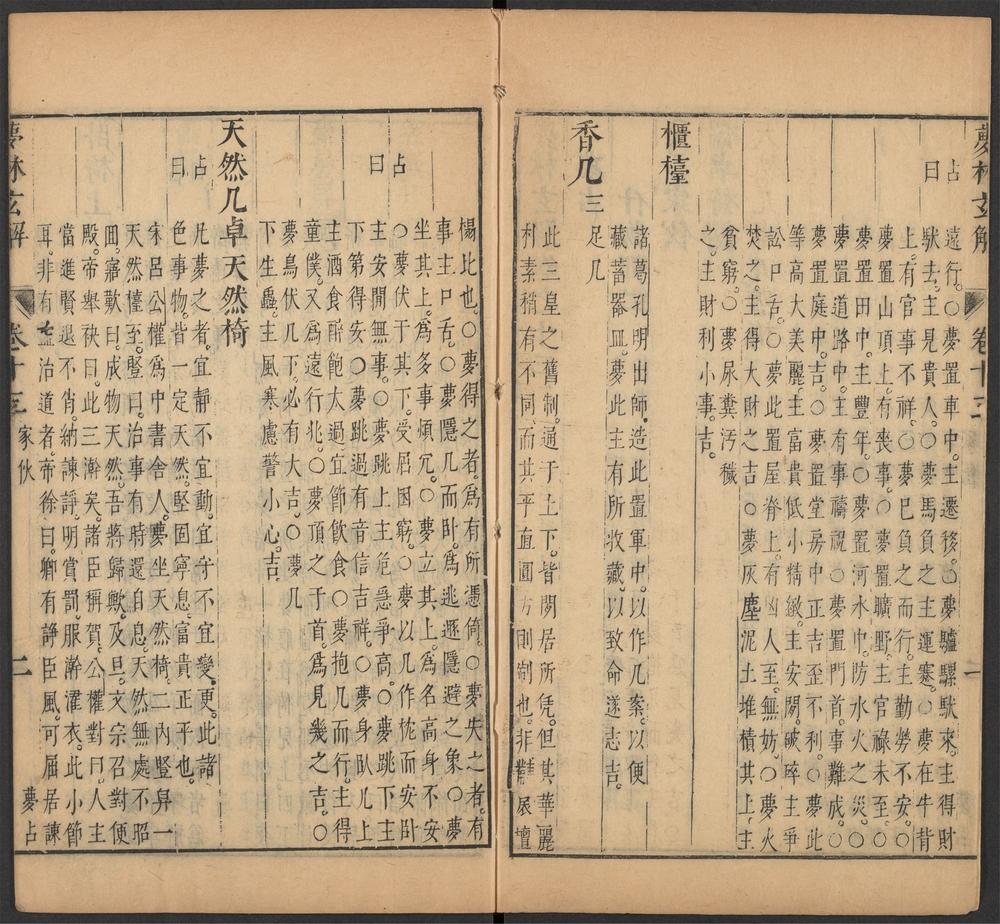 夢林玄解
卷十三
一
占遠行。○夢置車中。主遷移。○夢驢騾馱來。主得財
曰馱去。主見貴人。○夢馬負之主運蹇。○夢在牛背
上。有官事不祥。○夢巳負之而行。主勤勞不安。○
夢置山頂上。有喪事。○夢置曠野。主官祿未至。○
夢置田中。主豐年。○夢置河水中。防水火之災。○
夢置道路中。主有事禱祝。○夢置門首。事難成。○
夢置庭中。吉。○夢置堂房中正吉歪不利。○夢此
等高大美麗主富貴低小精緻。主安閑。破碎主爭
訟口舌。○夢此置屋脊上。有凶人至。無妨。○夢火
焚之。主得大財之吉○夢灰塵泥土堆積其上。主
貧窮。○夢尿糞汚穢
之。主財利小事。吉。
櫃檯
諸葛孔明出師。造此置軍中。以作几案。以便
藏蓄器皿。夢此主有所收藏。以致命遂志吉。
香几三
足几
此三皇之舊制。通于上下。皆閑居所凭。但其華麗
朴素稍有不同。而其平直圓方則制也。非
楊比也。○夢得之者。爲有所憑倚。○夢失之者。有
事主口舌。○夢隱几而卧。爲逃遯隱避之象○夢
坐其上。爲多事煩冗。○夢立其上。爲名高身不安
占○夢伏于其下。受屈困窮。○夢以几作枕而安卧
曰主安閒無事。○夢跳上主危急爭高。○夢跳下主
下第得安○夢跳過有音信吉祥。○夢身臥几上
主酒食醉飽太過宜節飲食○夢抱几而行。主得
童僕。又爲遠行兆。○夢頂之于首。爲見幾之吉。○
夢鳥伏几下。必有大吉。○夢几
下生蟲。主風寒慮警小心。吉。
天然几卓天然椅
占凡夢之者。宜靜不宜動。宜守不宜變更。此諸
曰色事物。皆一定天然。堅固寧息。富貴正平也。
宋呂公權爲中書舍人。夢坐天然椅。二內豎舁一
天然檯至。豎曰。治事有時還自息。天然無處不昭
田。寤歎曰。成物天然。吾將歸歟。及旦。文宗召對便
殿。帝舉袂曰。此三澣矣。諸臣稱賀。公權對曰。人主
當進賢退不肖。納諫諍。明賞罰。服澣濯衣。此小節
耳。非有益治道者。帝徐曰。卿有諍臣風。可屈居諫
夢林玄解
卷十三
家伙
二
夢占